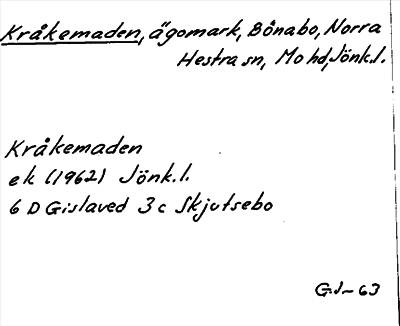 Kråkemaden, ägomark, Bånabo, Norra
Hestra sn, Mo hd, Jönk.l.
Kråkemaden
ek (1962) Jönk.l.
6 D Gislaved 3 c Skjutsebo
G.J-63